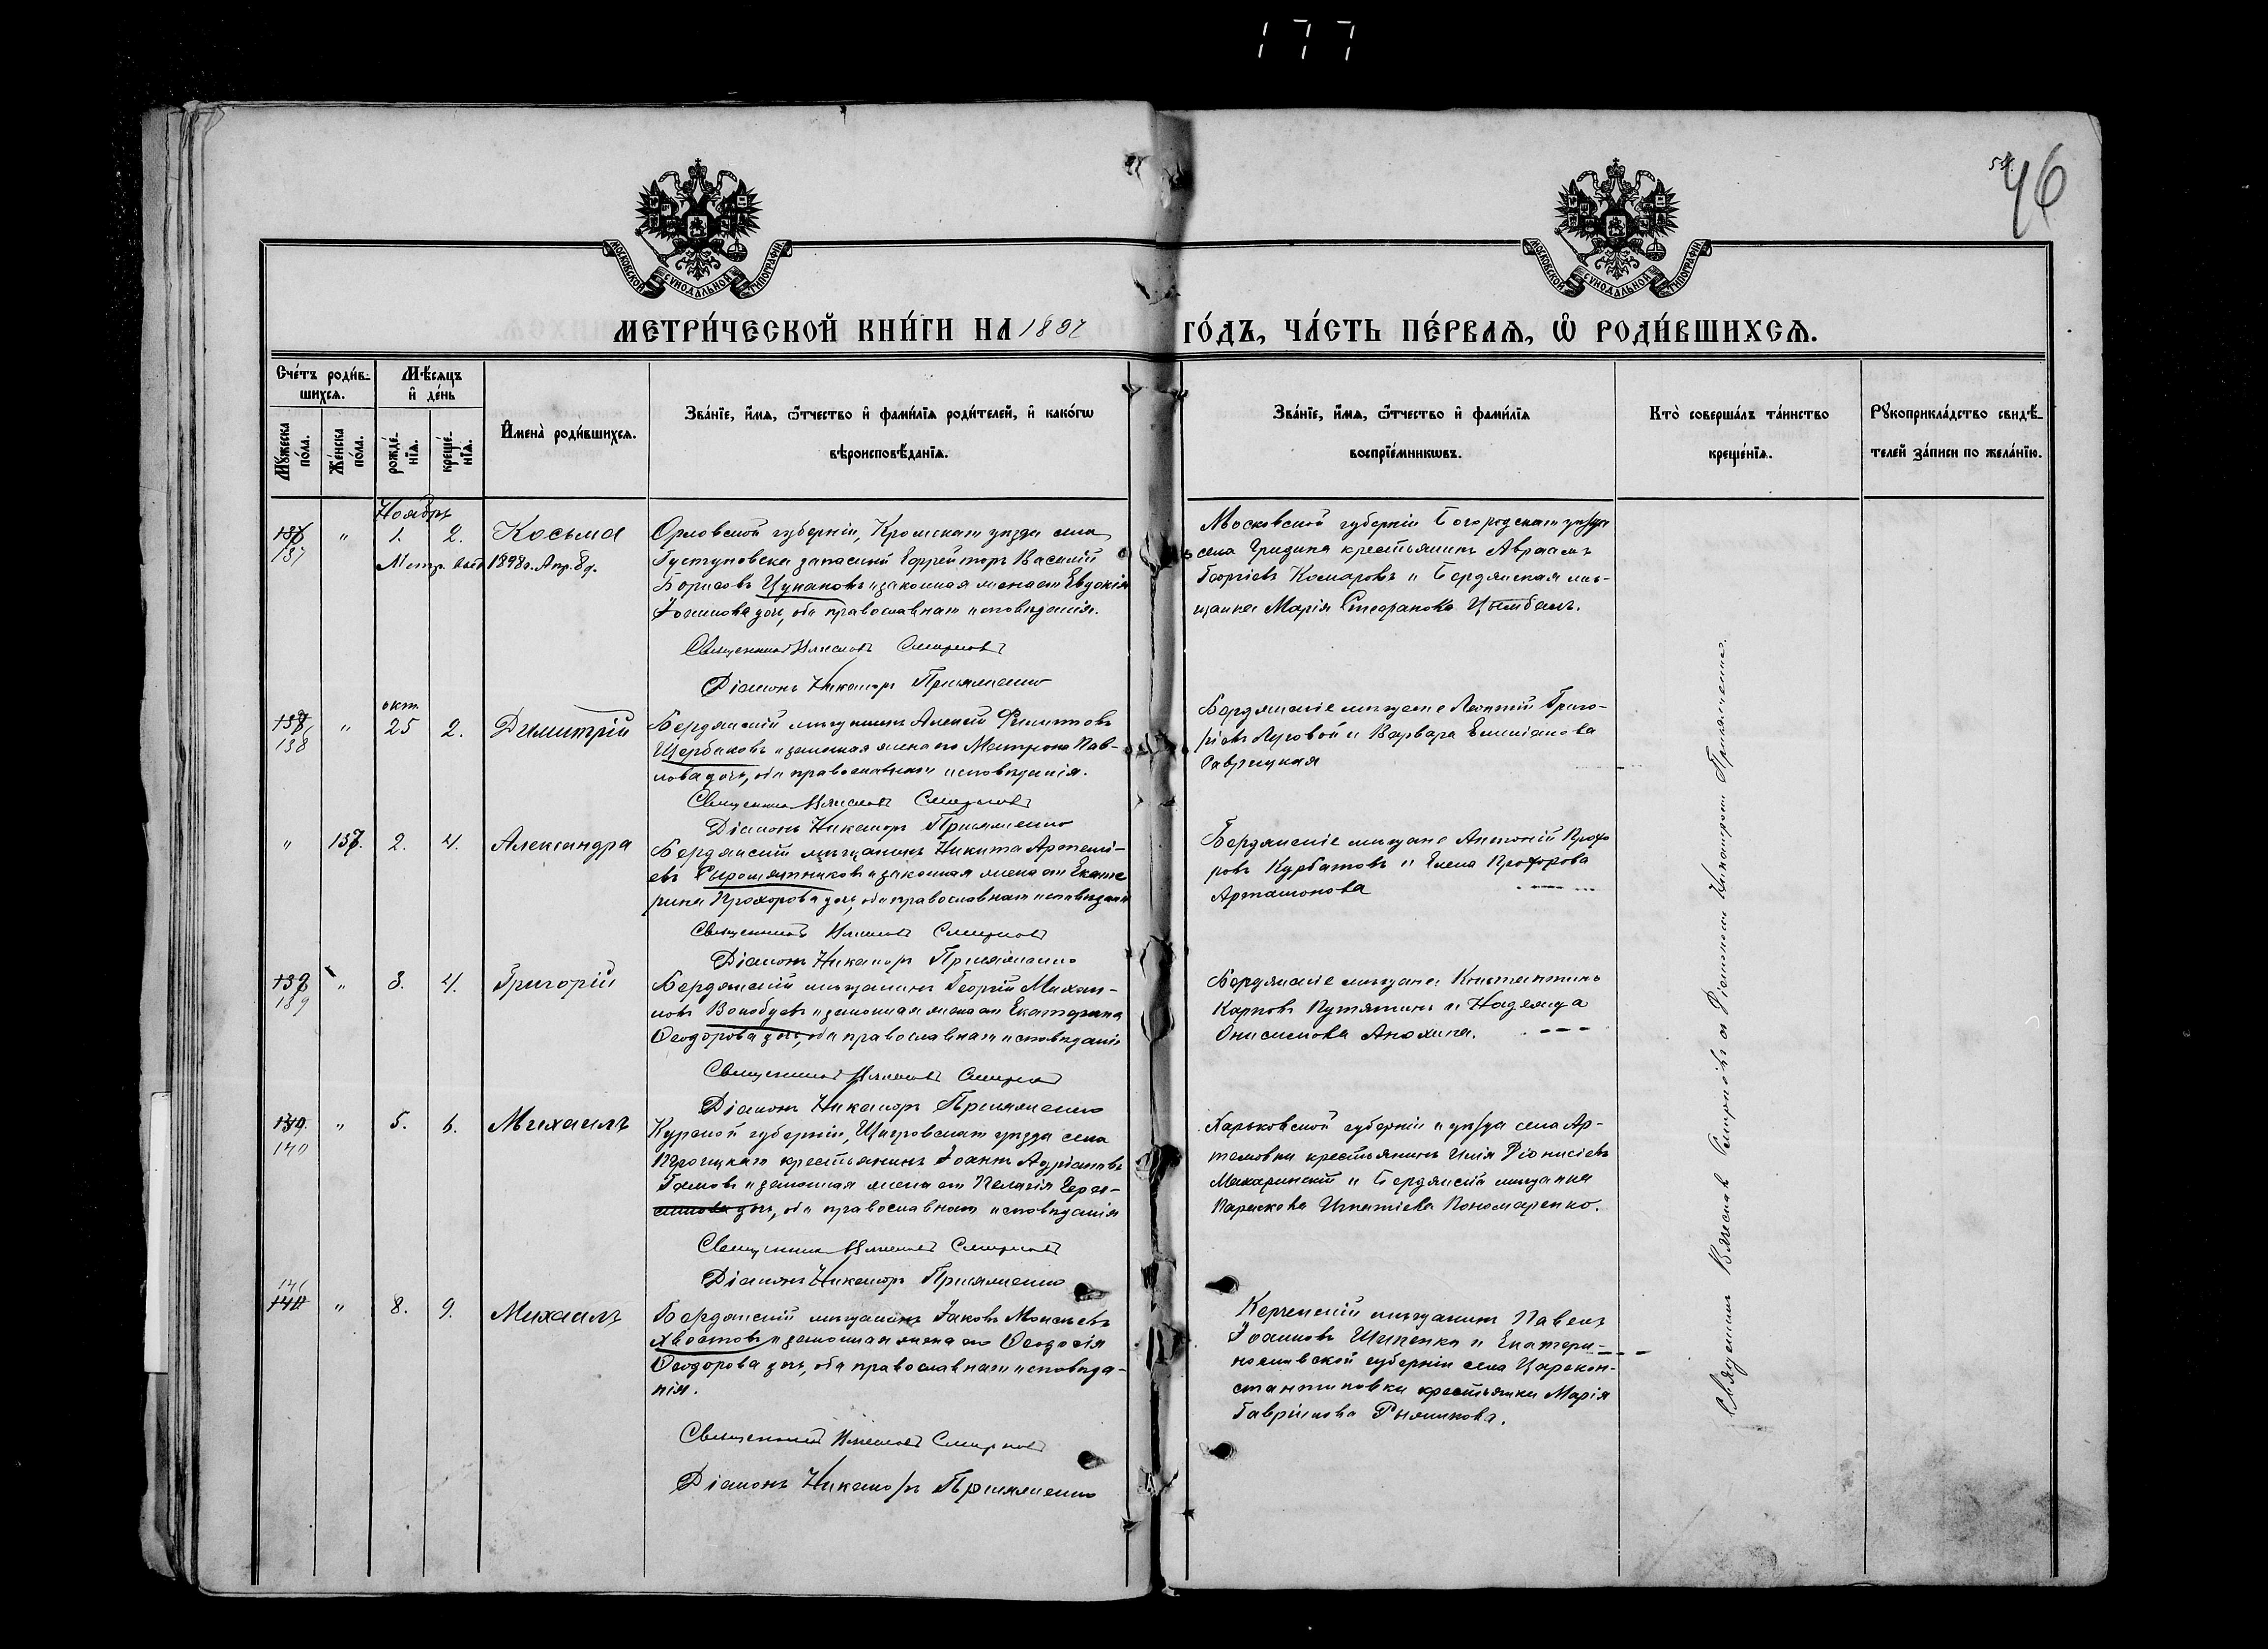 177
54.
46
МОСКОВСКОЙ СѴНОДАЛЬНОЙ ТИПОГРАФІИ
МОСКОВСКОЙ СѴНОДАЛЬНОЙ ТИПОГРАФІИ
МЕТРИ́ЧЕСКОЙ КНИ́ГИ НА 1897 ГО́ДЪ, ЧА́СТЬ ПЕ́РВАѦ, Ѡ҆ РОДИ́ВШИХСѦ.
Сче́тъ роди́в-
шихсѧ.
Мѹжеска по́ла.
Же́нска по́ла.
Мѣ́сѧцъ
и҆ де́нь
рожде́-
нїѧ.
креще́-
нїѧ.
И҆мена̀ роди́вшихсѧ.
Зва́нїе, и҆́мѧ, ѻ҆́тчество и҆ фами́лїѧ роди́телей, и҆ како́гѡ
вѣроисповѣ́данїѧ.
Зва́нїе, и҆́мѧ, ѻ҆́тчество и҆ фами́лїѧ
воспрїе́мникѡвъ.
Кто̀ соверша́лъ та́инство
креще́нїѧ.
Рѹкоприкла́дство свидѣ́-
телей за́писи по жела́нїю.
Ноябрь
137 " 1. 2. Косьма
Метр. выд. 1898 г. Апр. 8 д.
Орловской губерніи, Кромскаго уѣзда села
запасный Ефрейторъ Василій
Борисовъ Цукановъ и законная жена его Евдокія
Іоаннова дочь, оба православнаго исповѣданія.
Священникъ Смирновъ
Діаконъ Никаноръ
Московской губерніи Богородскаго уѣзда
села Гридина крестьянинъ Авраамъ
Георгіевъ Комаровъ и Бердянская мѣ-
щанка Марія Стефанова Цымбалъ.
окт.
138 " 25 2. Димитрій
Бердянскій мѣщанинъ Алексій Филиповъ
Щербаковъ и законная жена его Матрона Пав-
лова дочь, оба православнаго исповѣданія.
Священникъ Смирновъ
Діаконъ Никаноръ
Бердянскіе мѣщане Леонтій Григо-
рьевъ Луговой и Варвара Емиліанова
Гаврицкая
" 137. 2. 4. Александра
Бердянскій мѣщанинъ Никита Артемі-
евъ Сыромятниковъ и законная жена его Екате
рина Прохорова дочь, оба православнаго исповѣданія
Священникъ Смирновъ
Діаконъ Никаноръ
Бердянскіе мѣщане Антоній Прохо
ровъ Курбатовъ и Елена Прохорова
Артамонова
139 " 3. 4. Григорій
Бердянскій мѣщанинъ Георгій Михаи-
ловъ Волобуевъ и законная жена его Екатерина
Ѳеодорова дочь, оба православнаго исповѣданія
Священникъ Смирновъ
Діаконъ Никаноръ
Бердянскіе мѣщане Константинъ
Карповъ Путятинъ и Надежда
Онисимова Анохина.
140 " 5. 6. Михаилъ
Курской губерніи, Щигровскаго уѣзда села
Троицкаго крестьянинъ Іоаннъ Адріановъ
и законная жена его Пелагія Гера-
симова дочь, оба православнаго исповѣданія
Священникъ Смирновъ
Діаконъ Никаноръ
Харьковской губерніи и уѣзда села Ар-
темовки крестьянинъ Илія Діонисіевъ
Макаринскій и Бердянская мѣщанка
Параскева Игнатіева Пономаренко.
141 " 8. 9. Михаилъ
Бердянскій мѣщанинъ Іаковъ Моисеевъ
Хвостовъ и законная жена его Ѳеодосія
Ѳеодорова дочь, оба православнаго исповѣда-
нія.
Священникъ Смирновъ
Діаконъ Никаноръ
Керченскій мѣщанинъ Павелъ
Іоанновъ Шипенко и Екатери-
нославской губерніи села Царекон-
стантиновки крестьянка Марія
Гавріилова Рыжикова.
Священникъ Смирновъ съ Діакономъ Никаноромъ